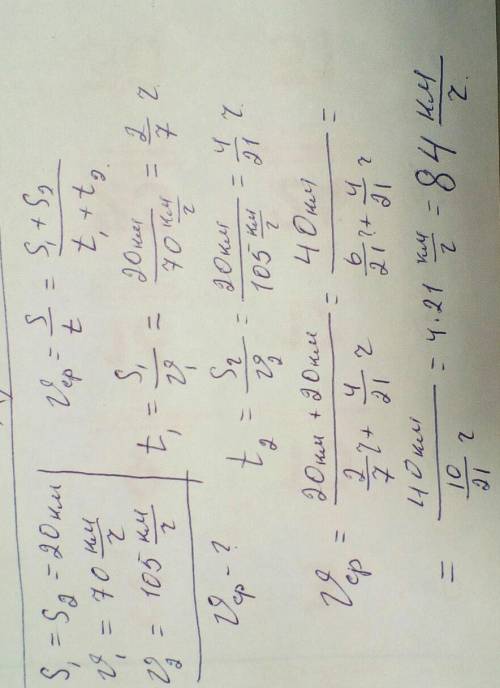 S₁ = S₂ = 20 км
υ₁ = 70 км/ч
υ₂ = 105 км/ч
υср - ?
υср = S/t = (S₁ + S₂)/(t₁ + t₂)
t₁ = S₁/υ₁ = 20 км/70 км/ч = 2/7 ч
t₂ = S₂/υ₂ = 20 км/105 км/ч = 4/21 ч
υср = (20 км + 20 км)/(2/7 ч + 4/21 ч) = 40 км/(6/21 ч + 4/21 ч) =
= 40 км/(10/21 ч) = 4·21 км/ч = 84 км/ч